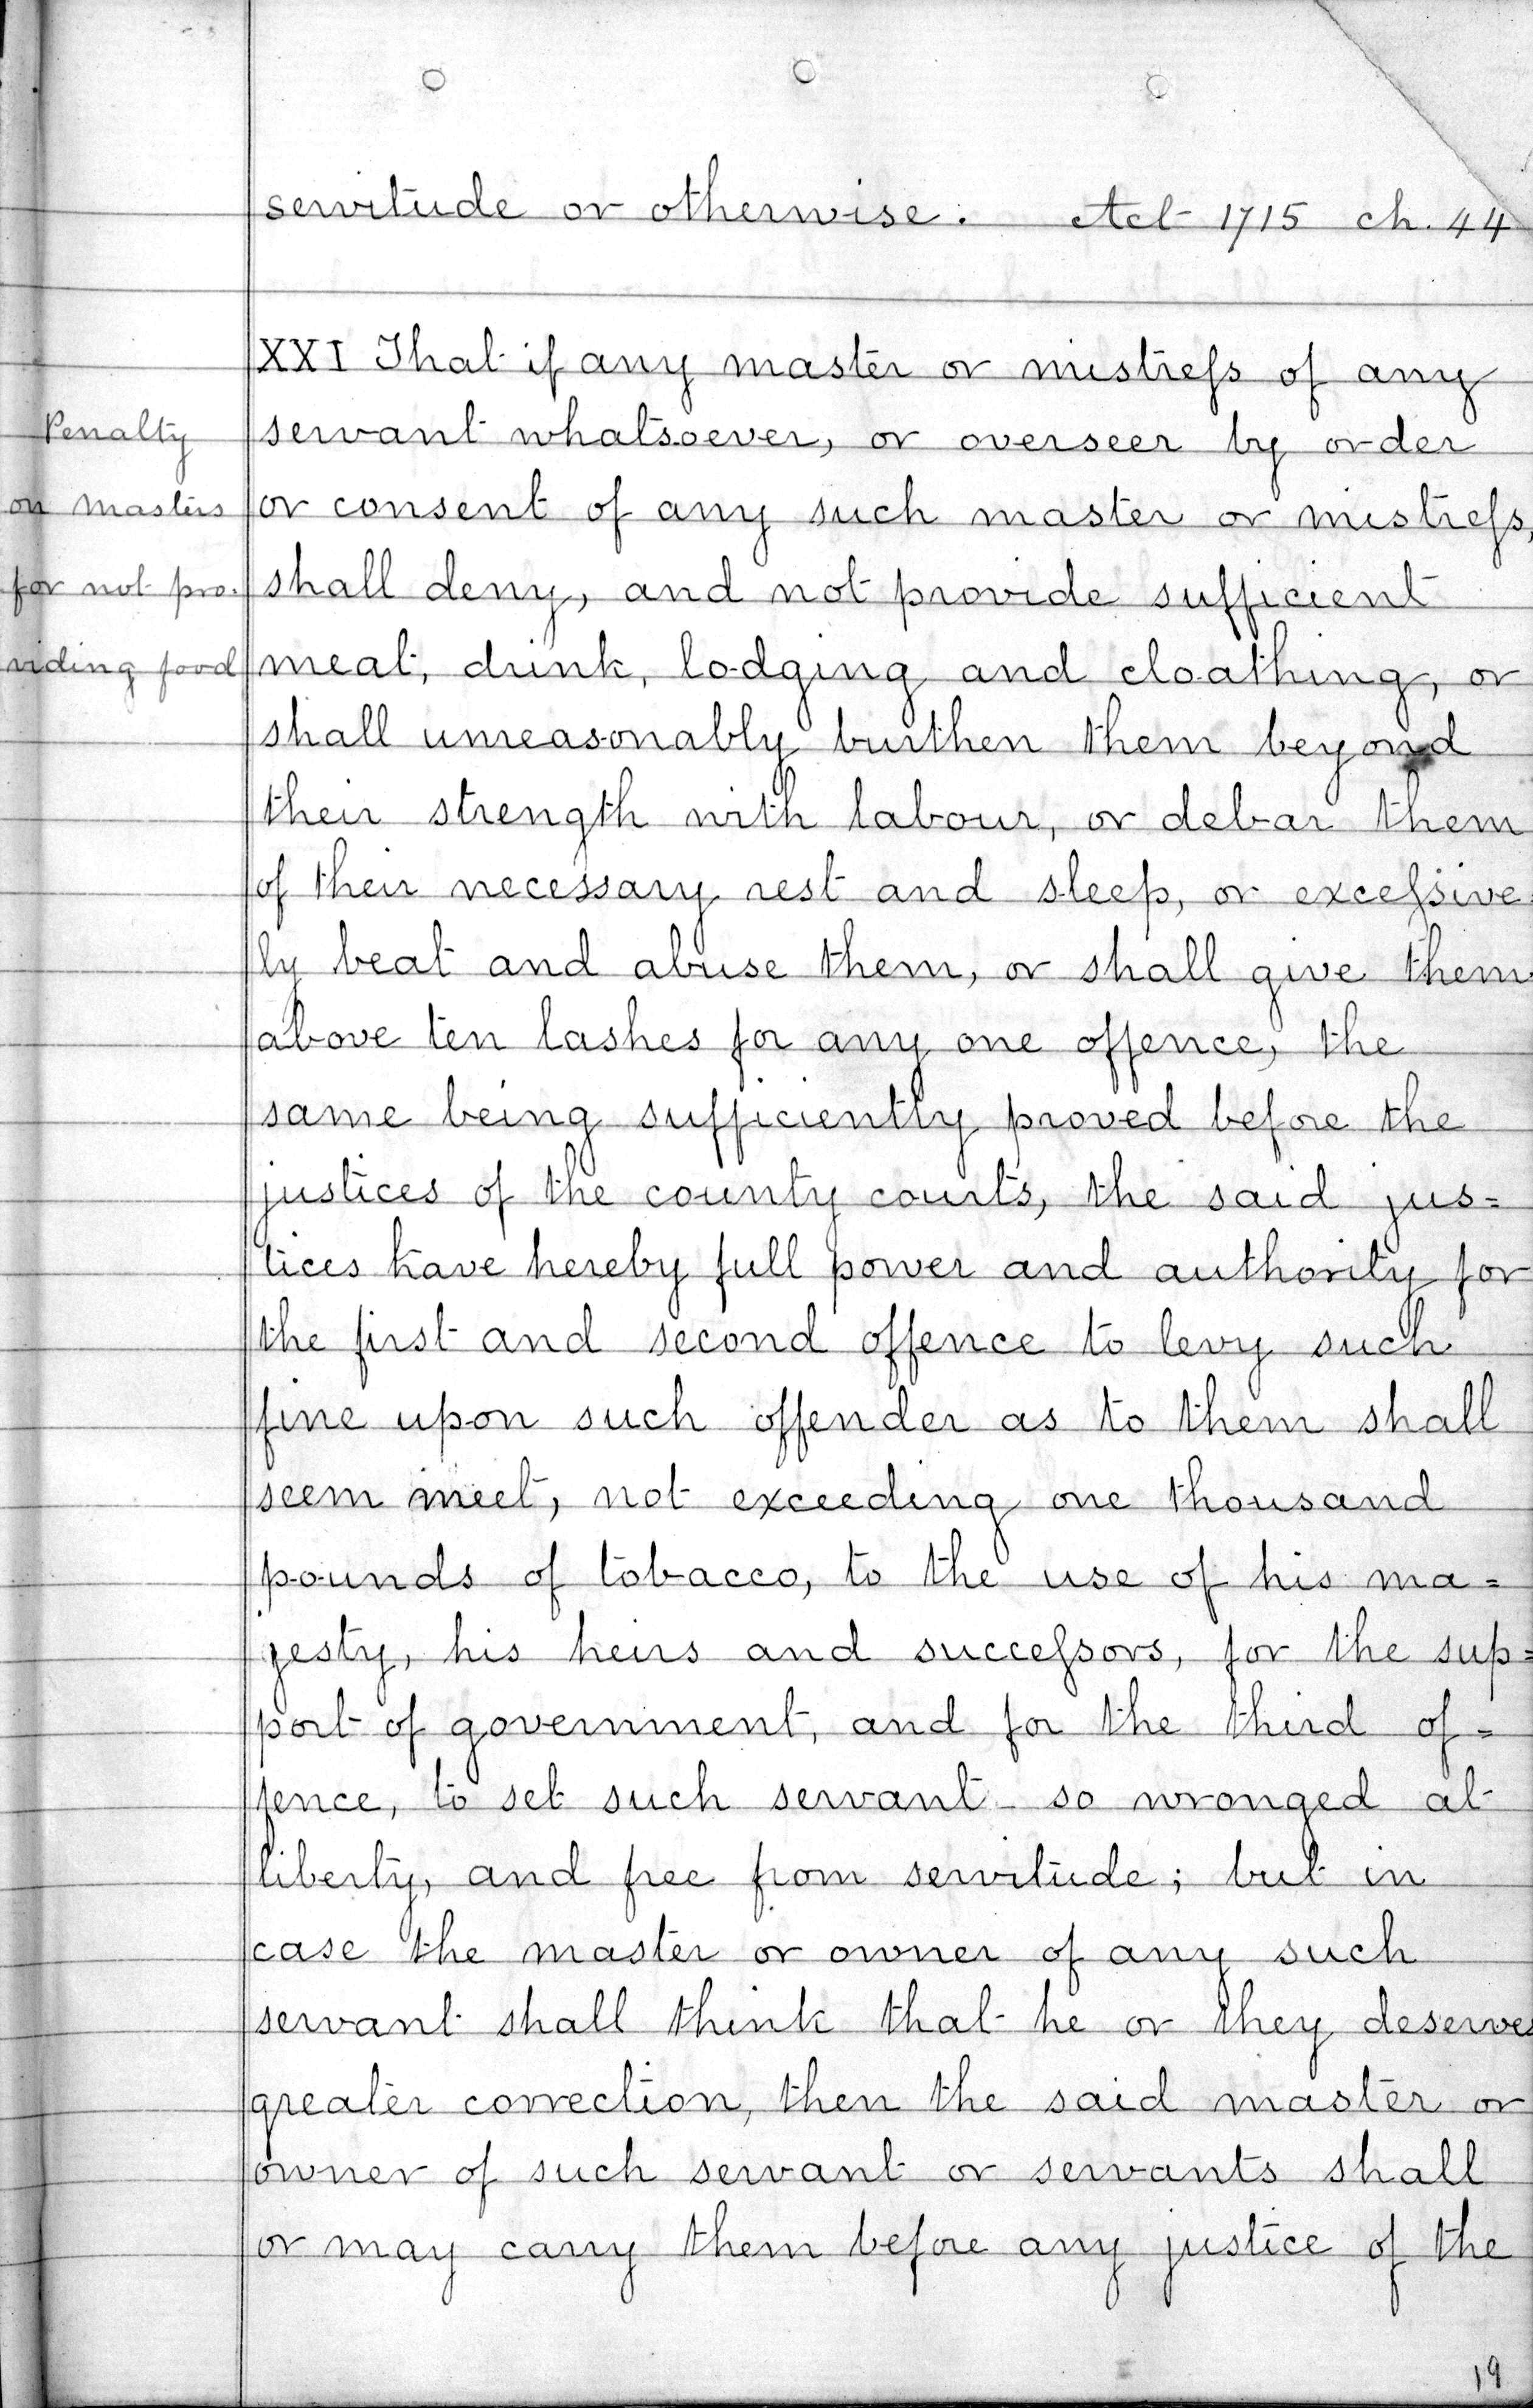 servitude or otherwise. Act 1715 ch. 44
XXI That if any master or mistreſs of any
Penalty
servant whatsoever, or overseer by order
on masters
or consent of any such master or mistreſs,
for not pro-
shall deny, and not provide sufficient
viding food
meat, drink, lodging and cloathing, or
shall unreasonably burthen them beyond
their strength with labour, or debar them
of their necessary rest and sleep, or exceſsive=
ly beat and abuse them, or shall give them
above ten lashes for any one offence, the
same being sufficiently proved before the
justices of the county courts, the said jus=
tices have hereby full power and authority for
the first and second offence to levy such
fine upon such offender as to them shall
seem meet, not exceeding one thousand
pounds of tobacco, to the use of his ma=
jesty, his heirs and succeſsors, for the sup=
port of government, and for the third of=
fence, to set such servant so wronged at
liberty, and free from servitude; but in
case the master or owner of any such
servant shall think that he or they deserves
greater correction, then the said master or
owner of such servant or servants shall
or may carry them before any justice of the
19